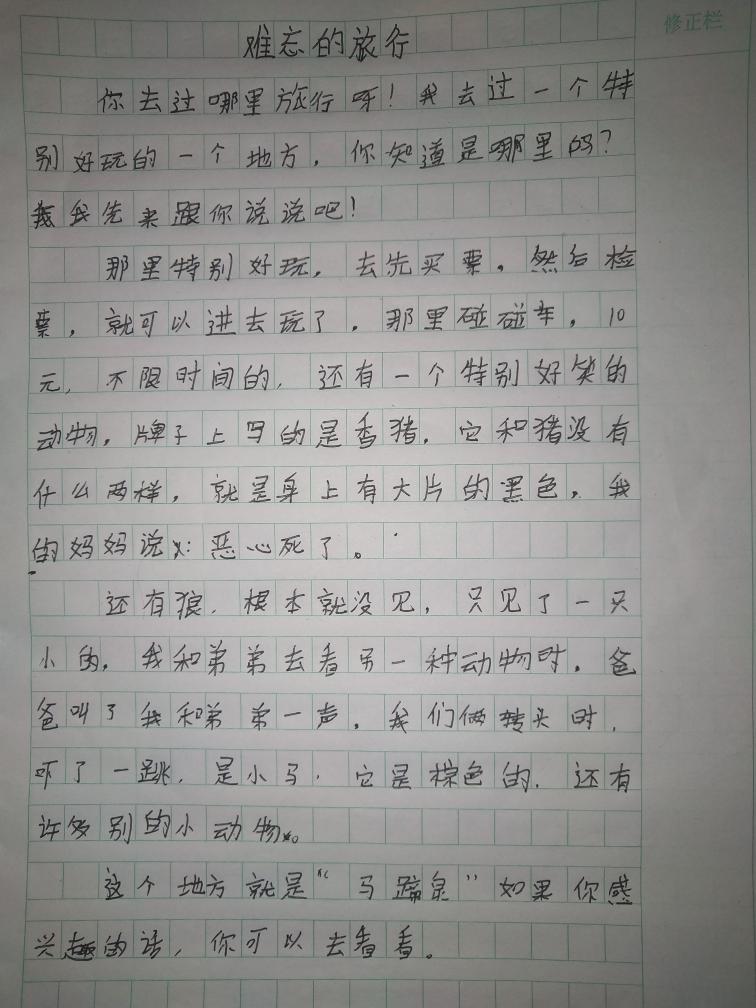 修正栏
难忘的旅行
你去过哪里旅行呀！我去过一个特
别好玩的一个地方，你知道是哪里吗？
我先来跟你说说吧！
那里特别好玩，去先买票，然后检
票，就可以进去玩了，那里碰碰车，10
元，不限时间的，还有一个特别好笑的
动物，牌子上写的是香猪，它和猪没有
什么两样，就是身上有大片的黑色，我
的妈妈说：恶心死了。
还有狼，根本就没见，只见了一只
小的，我和弟弟去看另一种动物时，爸
爸叫了我和弟弟一声，我们俩转头时，
吓了一跳，是小马，它是棕色的，还有
许多别的小动物。
这个地方就是“马蹄泉”如果你感
兴趣的话，你可以去看看。